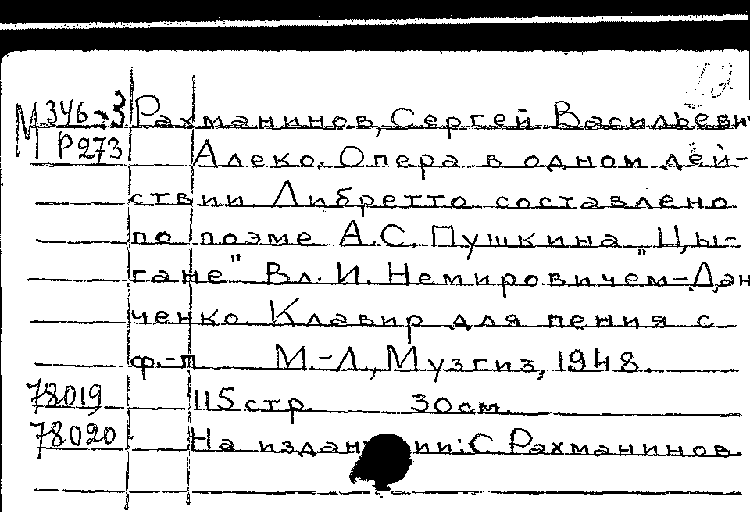 12
М 346-3 Рахманинов, Сергей Васильеви
Р273 Алеко. Опера в одном дей-
ствии Либретто составлено
по поэме А.С. Пушкина „Цы-
гане" Вл. И. Немировичем-Дан
ченко. Клавир для пения с
ф.-п М.-Л., Музгиз, 1948.
78019 115 стр. 30 см.
78020 На издан ии: С. Рахманинов.